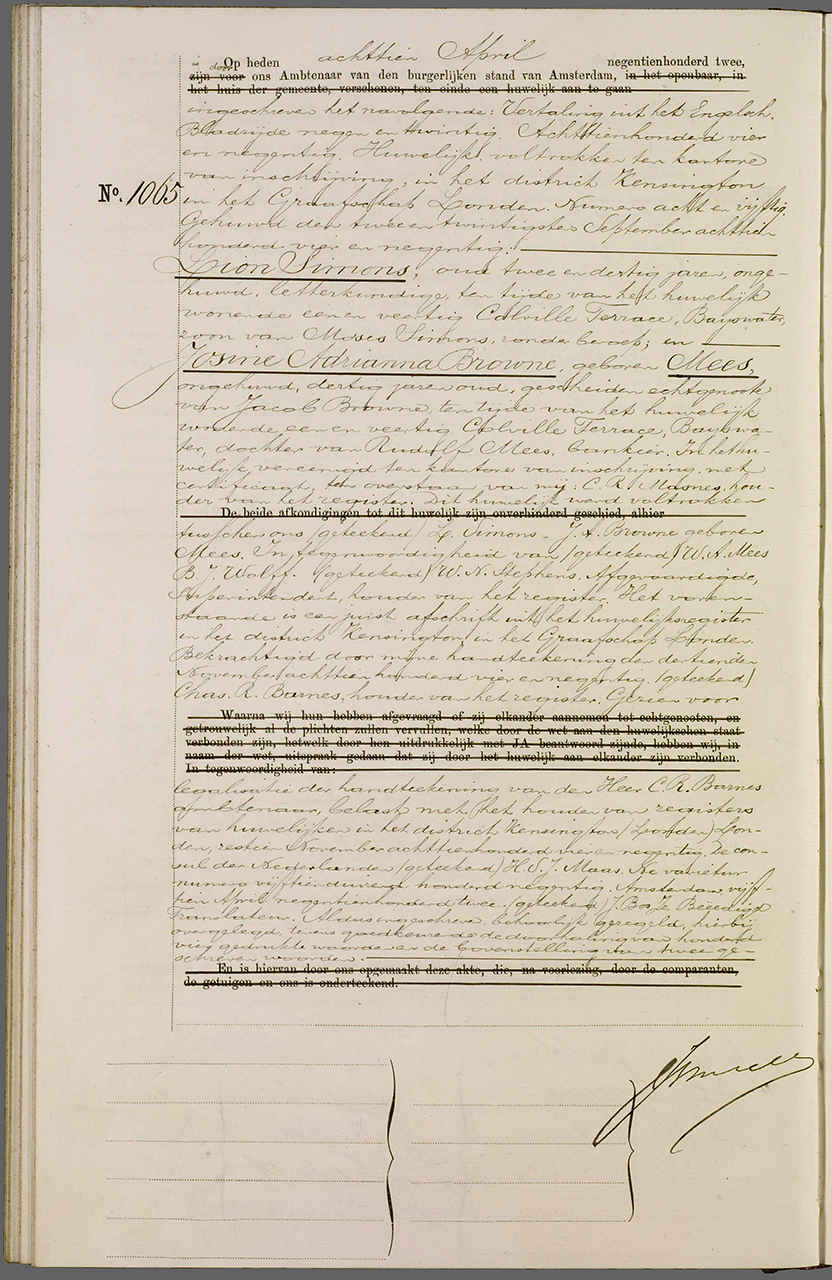 Op heden achttien April negentienhonderd twee,
zijn voor door ons Ambtenaar van den burgerlijken stand van Amsterdam, in het openbaar, in
het huis der gemeente, verschenen, ten einde een huwelijk aan te gaan
ingeschreven het navolgende: Vertaling uit het Engelsch.
Bladzijde negen en twintig. Achttienhonderd vier
en negentig. Huwelijk voltrokken ten kantore
van inschrijving, in het district Kensington
No. 1065
in het Graafschap Londen. Numero acht en vijftig.
Gehuwd den twee en twintigsten September achttien
honderd vier en negentig:
Lion Simons, oud twee en dertig jaren, onge-
huwd, letterkundige, ten tijde van het huwelijk
wonende een en veertig Colville Terrace, Bayswater,
zoon van Moses Simons, zonder beroep; en
Josine Adrianna Browne, geboren Mees,
ongehuwd, dertig jaren oud, gescheiden echtgenoote
van Jacob Browne, ten tijde van het huwelijk
wonende een en veertig Colville Terrace, Bayswa-
ter, dochter van Rudolf Mees, bankier. In het hu-
welijk vereenigd ten kantore van inschrijving, met
certificaat, ten overstaan van mij: C. R. hou-
der van het register. Dit huwelijk werd voltrokken
De beide afkondigingen tot dit huwelijk zijn onverhinderd geschied, alhier
tusschen ons (geteekend) L. Simons. J. A. Browne geboren
Mees. In tegenwoordigheid van (geteekend) W. A. Mees
B. J. Wolff. (geteekend) W. N. Stephens, Afgevaardigde,
Superintendent, houder van het register. Het voren-
staande is een juist afschrift uit het huwelijksregister
in het district Kensington, in het Graafschap Londen.
Bekrachtigd door mijne handteekening den dertienden
November achttien honderd vier en negentig. (geteekend)
Chas. R. Barnes, houder van het register. Gezien voor
Waarna wij hun hebben afgevraagd of zij elkander aannemen tot echtgenooten, en
getrouwelijk al de plichten zullen vervullen, welke door de wet aan den huwelijkschen staat
verbonden zijn, hetwelk door hen uitdrukkelijk met JA beantwoord zijnde, hebben wij, in
naam der wet, uitspraak gedaan dat zij door het huwelijk aan elkander zijn verbonden.
In tegenwoordigheid van:
legalisatie der handteekening van den Heer C. R. Barnes
Ambtenaar, belast met het houden van registers
van huwelijken in het district Kensington (Londen) Lon-
den, zestien November achttienhonderd vier en negentig. De con-
sul der Nederlanden (geteekend) H. S. J. Maas. Ne varietur
numero vijftienduizend honderd negentig. Amsterdam vijf-
tien April negentienhonderd twee. (geteekend) J. Beëedigd
Translateur. Aldus ingeschreven, behoorlijk geregeld, hierbij
overgelegd, tevens goedkeurende de doorhaling van honderd
vier gedrukte woorden en de bovenstelling van twee ge-
schreven woorden.
En is hiervan door ons opgemaakt deze akte, die, na voorlezing, door de comparanten,
de getuigen en ons is onderteekend.